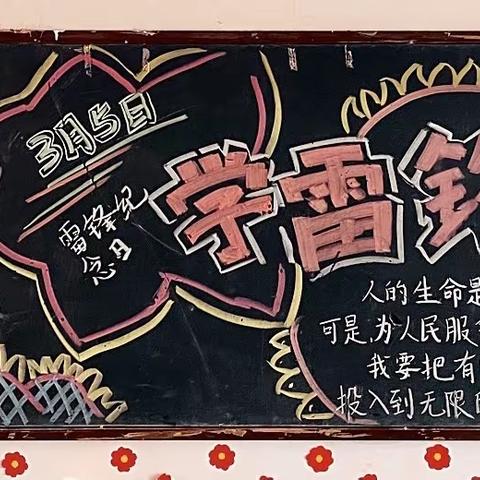 3月5日
雷锋纪
念日
学雷锋
人的生命是
可是,为人民服务
我要把有
投入到无限的